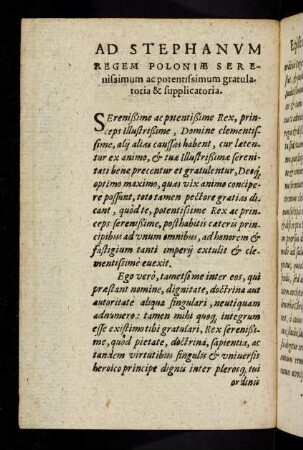 AD STEPHANVM
REGEM POLONIÆ SERE-
nissimum ac potentissimum gratula-
toria & supplicatoria.
SErenissime ac potentissime Rex, prin-
ceps illustrissime, Domine clementis-
sime, alij alias caussas habent, cur læten-
tur ex animo, & tuæ Illustrissimæ sereni-
tati bene precentur et gratulentur, Deoq́;
optimo maximo, quas vix animo concipe-
re possunt, toto tamen pectore gratias di-
cant, quòd te, potentissime Rex ac prin-
ceps serenissime, posthabitis cæteris prin-
cipibus ad vnum omnibus, ad honorem &
fastigium tanti imperij extulit & cle-
mentissimè euexit.
Ego verò, tametsi me inter eos, qui
præstant nomine, dignitate, doctrina aut
autoritate aliqua singulari, neutiquam
adnumero: tamen mihi quoq́, integrum
esse existimo tibi gratulari, Rex serenissi-
me, quòd pietate, doctrina, sapientia, ac
tandem virtutibus singulis & vniuersis
heroico principe dignis inter plerosq́, tui
ordinis